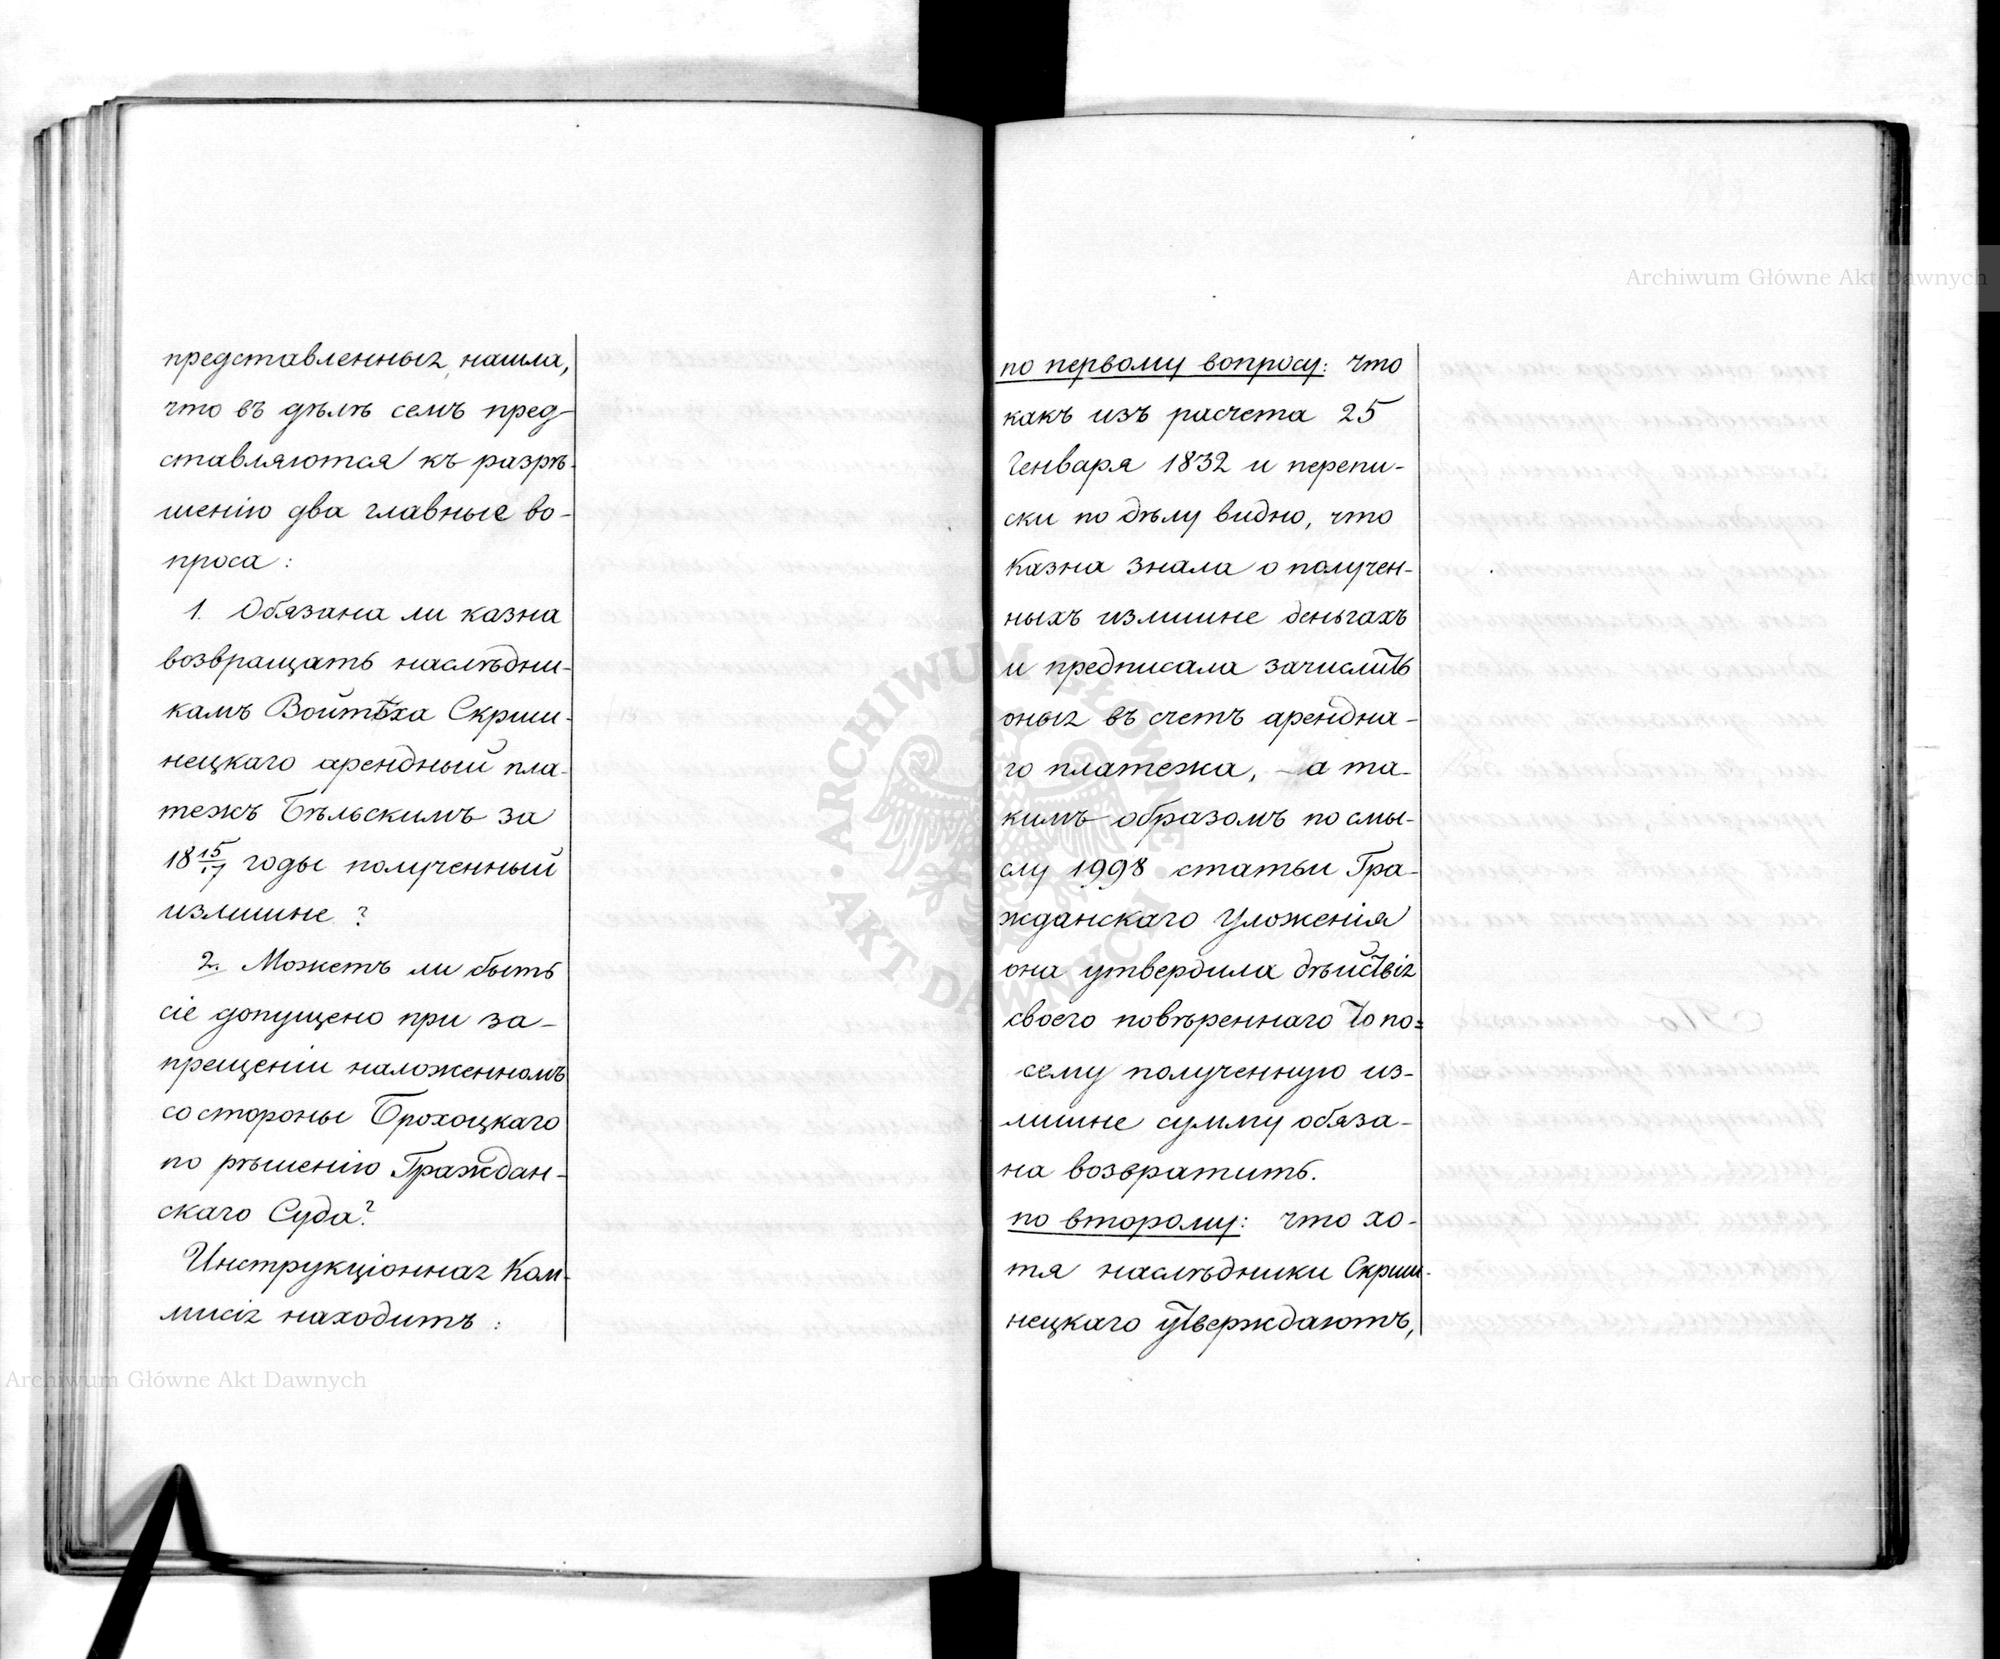 представленныя, нашла,
что въ дѣлѣ семъ пред-
ставляются къ разрѣ-
шенію два главные во-
проса:
1. Обязана ли казна
возвращать наслѣдни-
камъ Войтѣха Скржи-
нецкаго арендный пла-
тежъ Бѣльскимъ за
18 15/17 годы полученный
излишне?
2. Можетъ ли быть
сіе допущено при за-
прещеніи наложенномъ
со стороны Брохоцкаго
по рѣшенію Граждан-
скаго Суда?
Инструкціонная Ком-
мисія находитъ:
по первому вопросу: что
какъ изъ расчета 25
Генваря 1832 и перепи-
ски по дѣлу видно, что
Казна знала о получен-
ныхъ излишне деньгахъ
и предписала зачислить
оныя въ счетъ арендна-
го платежа, – а та-
кимъ образомъ по смы-
слу 1998 статьи Гра-
жданскаго Уложенія
она утвердила дѣйствія
своего повѣреннаго то по=
сему полученную из-
лишне сумму обяза-
на возвратить.
по второму: что хо-
тя наслѣдники Скржи-
нецкаго утверждаютъ,
Archiwum Główne Akt Dawnych
Archiwum Główne Akt Dawnych
ARCHIWUM GŁÓWNE · AKT DAWNYCH ·